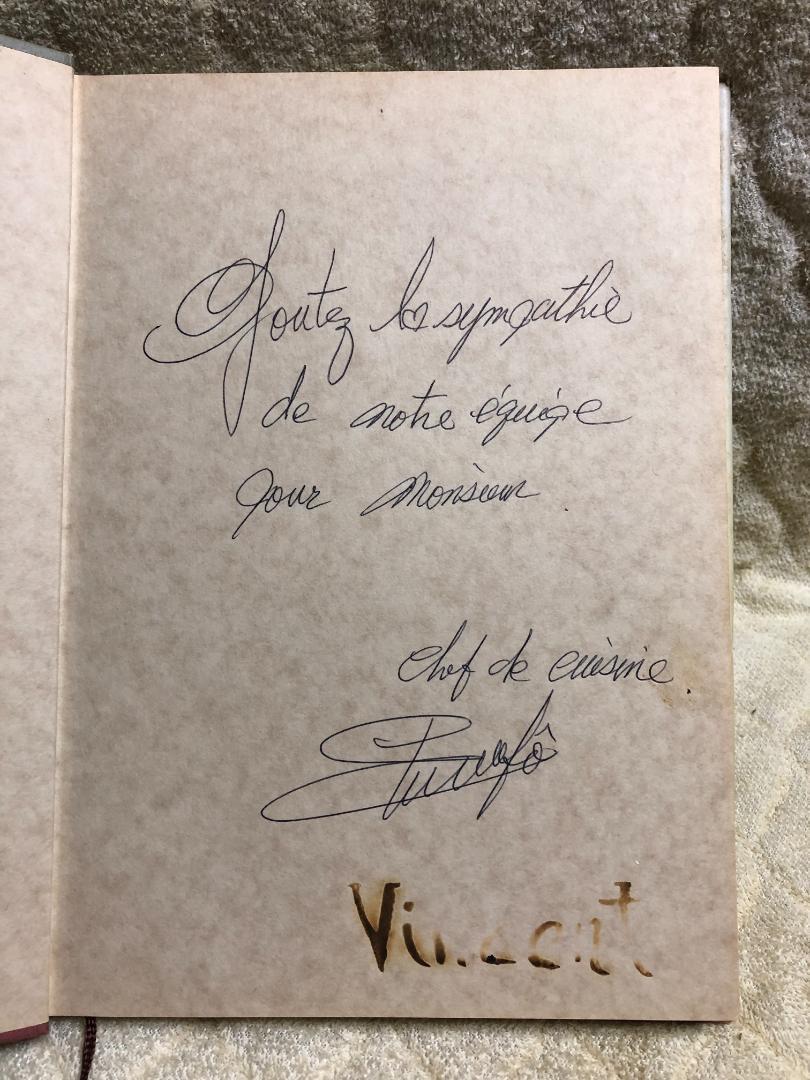 Goutez la sympathie
de notre équipe
pour monsieur.
chef de cuisine.
Vincent